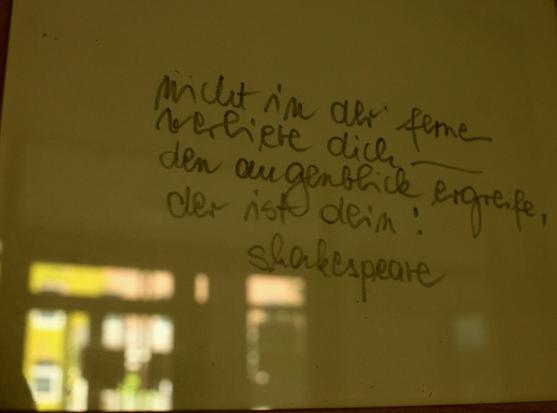 nicht in der ferne
verliere dich —
den augenblick ergreife,
der ist dein!
shakespeare